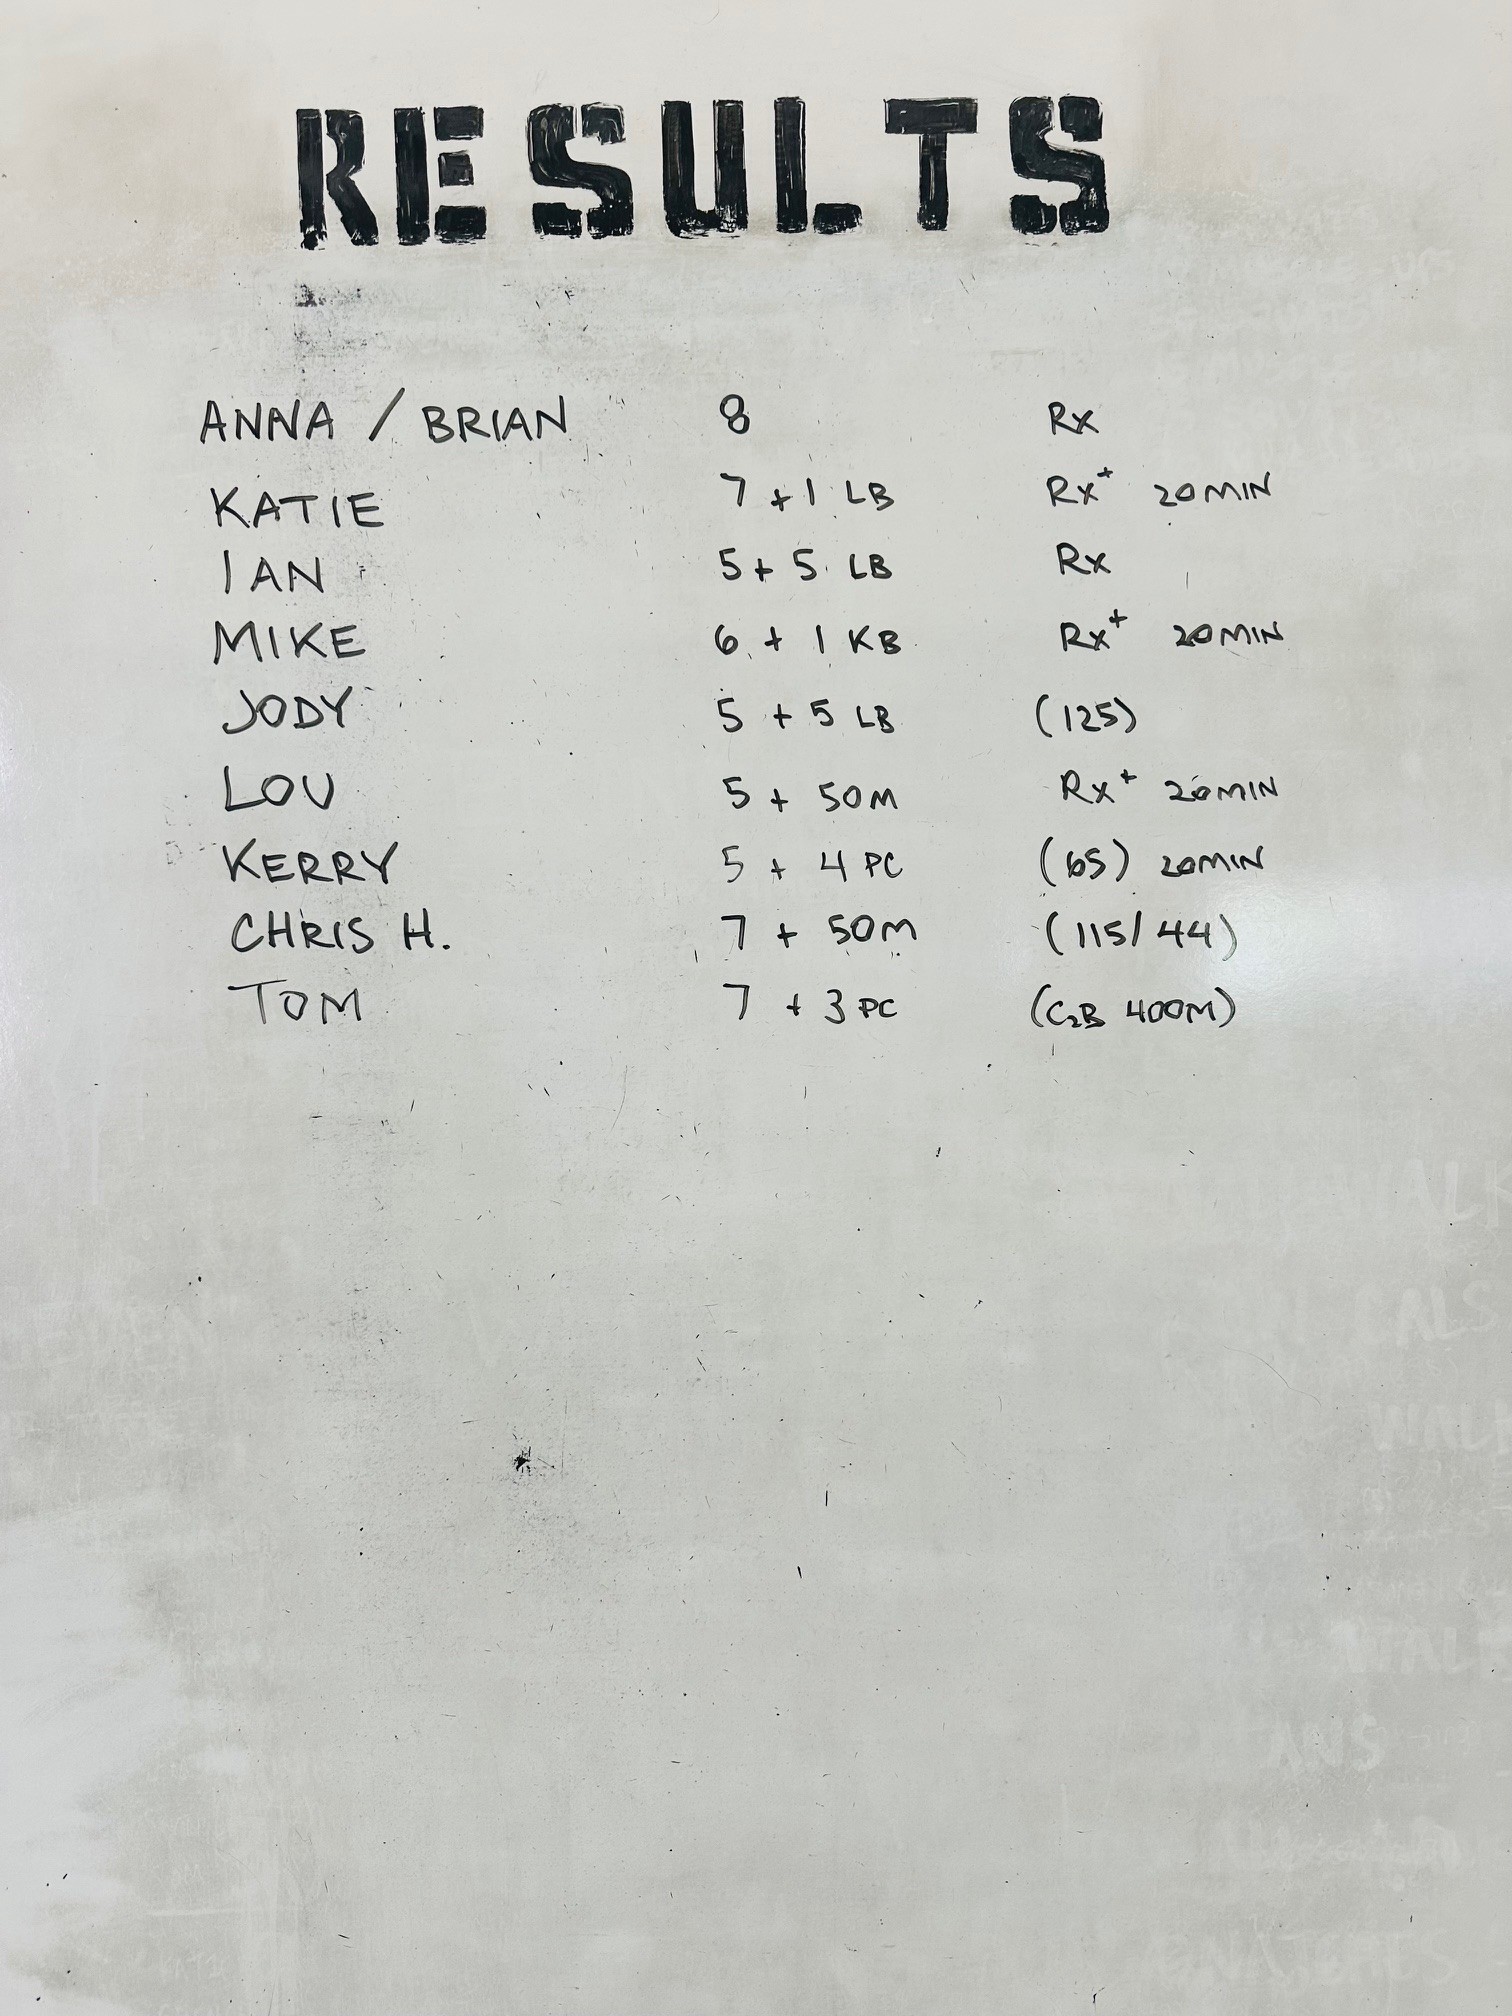 RESULTS
ANNA / BRIAN 8 Rx
KATIE 7 + 1 LB Rx+ 20MIN
IAN 5 + 5 LB Rx
MIKE 6 + 1 KB Rx+ 20MIN
JODY 5 + 5 LB (125)
LOU 5 + 50M Rx+ 20MIN
KERRY 5 + 4 PC (65) 20MIN
CHRIS H. 7 + 50M (115/44)
TOM 7 + 3 PC (C2B 400M)
WALK
CALS
WALK